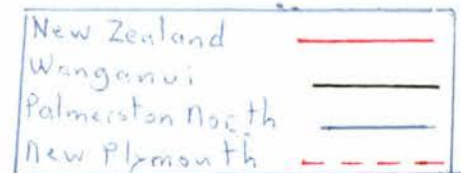 New Zealand
Wanganui
Palmerston North
New Plymouth